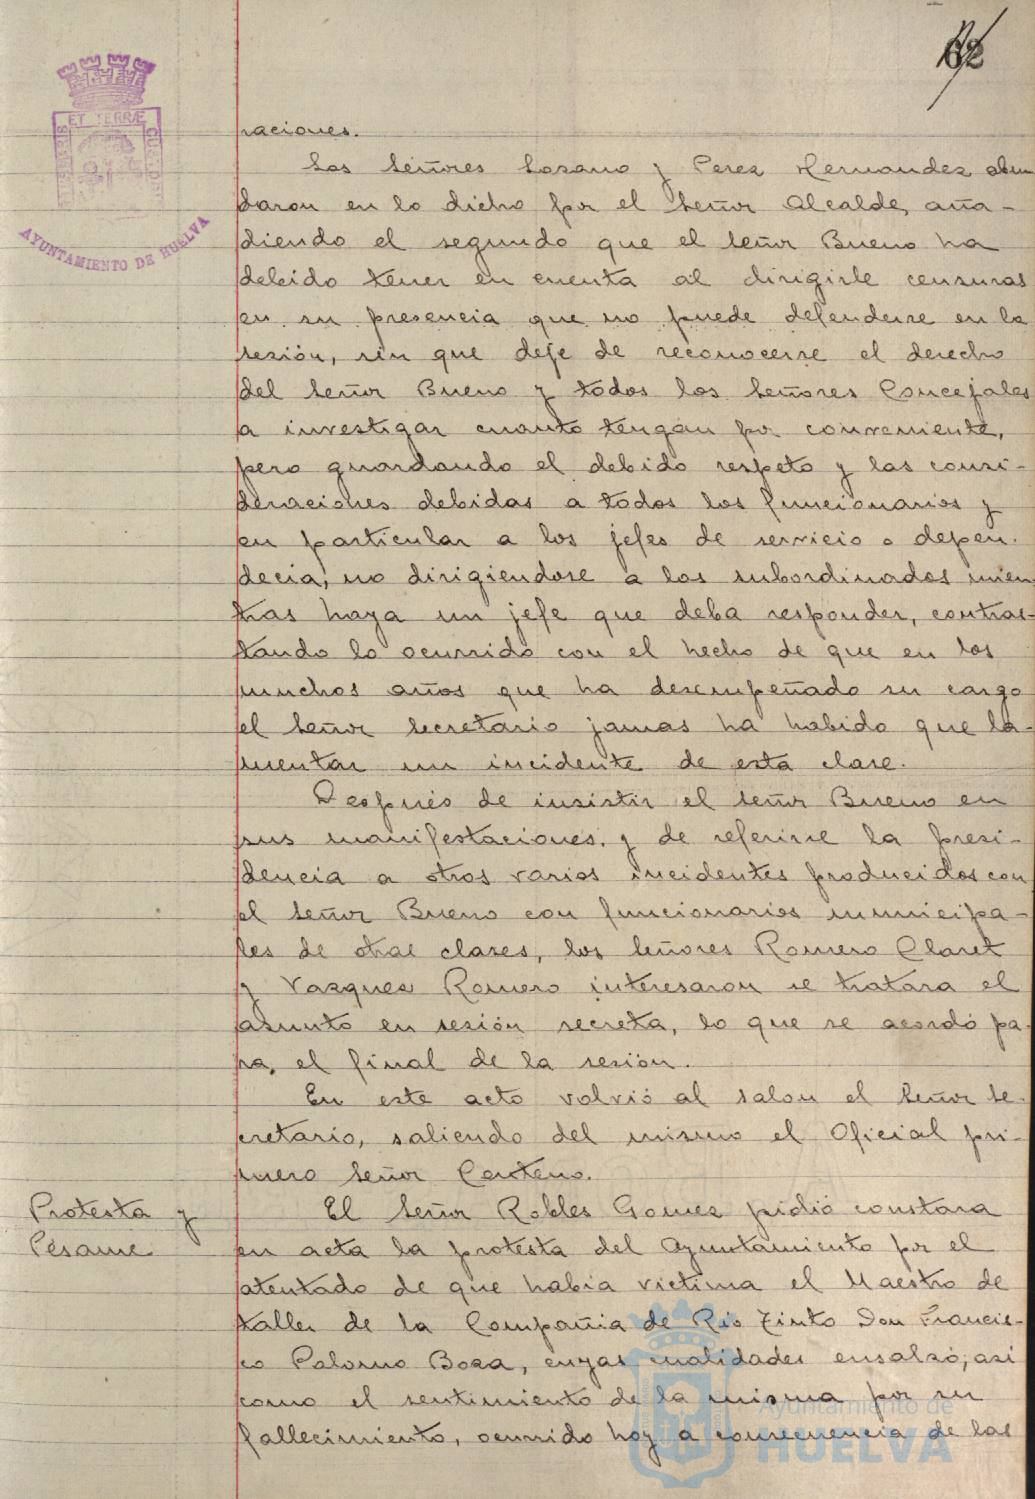 62
ET TERRÆ
AYUNTAMIENTO DE HUELVA
raciones.
Los Señores Lozano y Perez Hernandez abun
daron en lo dicho por el Señor Alcalde, aña-
diendo el segundo que el Señor Bueno ha
debido tener en cuenta al dirigirle censuras
en su presencia que no puede defenderse en la
sesión, sin que deje de reconocerse el derecho
del Señor Bueno y todos los Señores Concejales
a investigar cuanto tengan por conveniente,
pero guardando el debido respeto y las consi-
deraciones debidas a todos los funcionarios y
en particular a los jefes de servicio o depen-
decia, no dirigiendose a los subordinados mien
tras haya un jefe que deba responder, contras-
tando lo ocurrido con el hecho de que en los
muchos años que ha desempeñado su cargo
el Señor Secretario jamas ha habido que la-
mentar un incidente de esta clase.
Después de insistir el Señor Bueno en
sus manifestaciones, y de referirse la presi-
dencia a otros varios incidentes producidos con
el Señor Bueno con funcionarios municipa-
les de otras clases, los Señores Romero Claret
y Vazquez Romero interesaron se tratara el
asunto en sesión secreta, lo que se acordó pa-
ra, el final de la sesión.
En este acto volvió al salon el Señor Se-
cretario, saliendo del mismo el Oficial pri-
mero Señor Centeno.
Protesta y
Pésame
El Señor Robles Gomez pidió constara
en acta la protesta del Ayuntamiento por el
atentado de que habia victima el Maestro de
taller de la Compañia de Rio Tinto Don Francis-
co Palomo Boza, cuyas cualidades ensalzó; asi
como el sentimiento de la misma por su
fallecimiento, ocurrido hoy a consecuencia de las
Ayuntamiento de
HUELVA